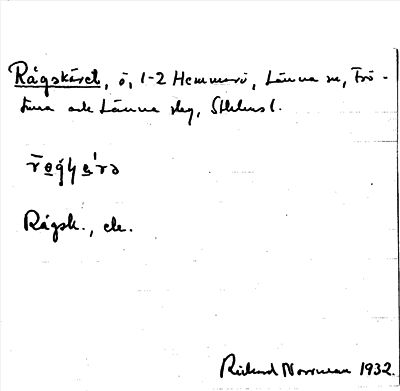 Rågskäret, ö, 1-2 Hemmarö, Länna sn, Frö-
tuna och Länna slg, Sthlms l.
Rågsk., ek.
Rickard Norrman 1932.